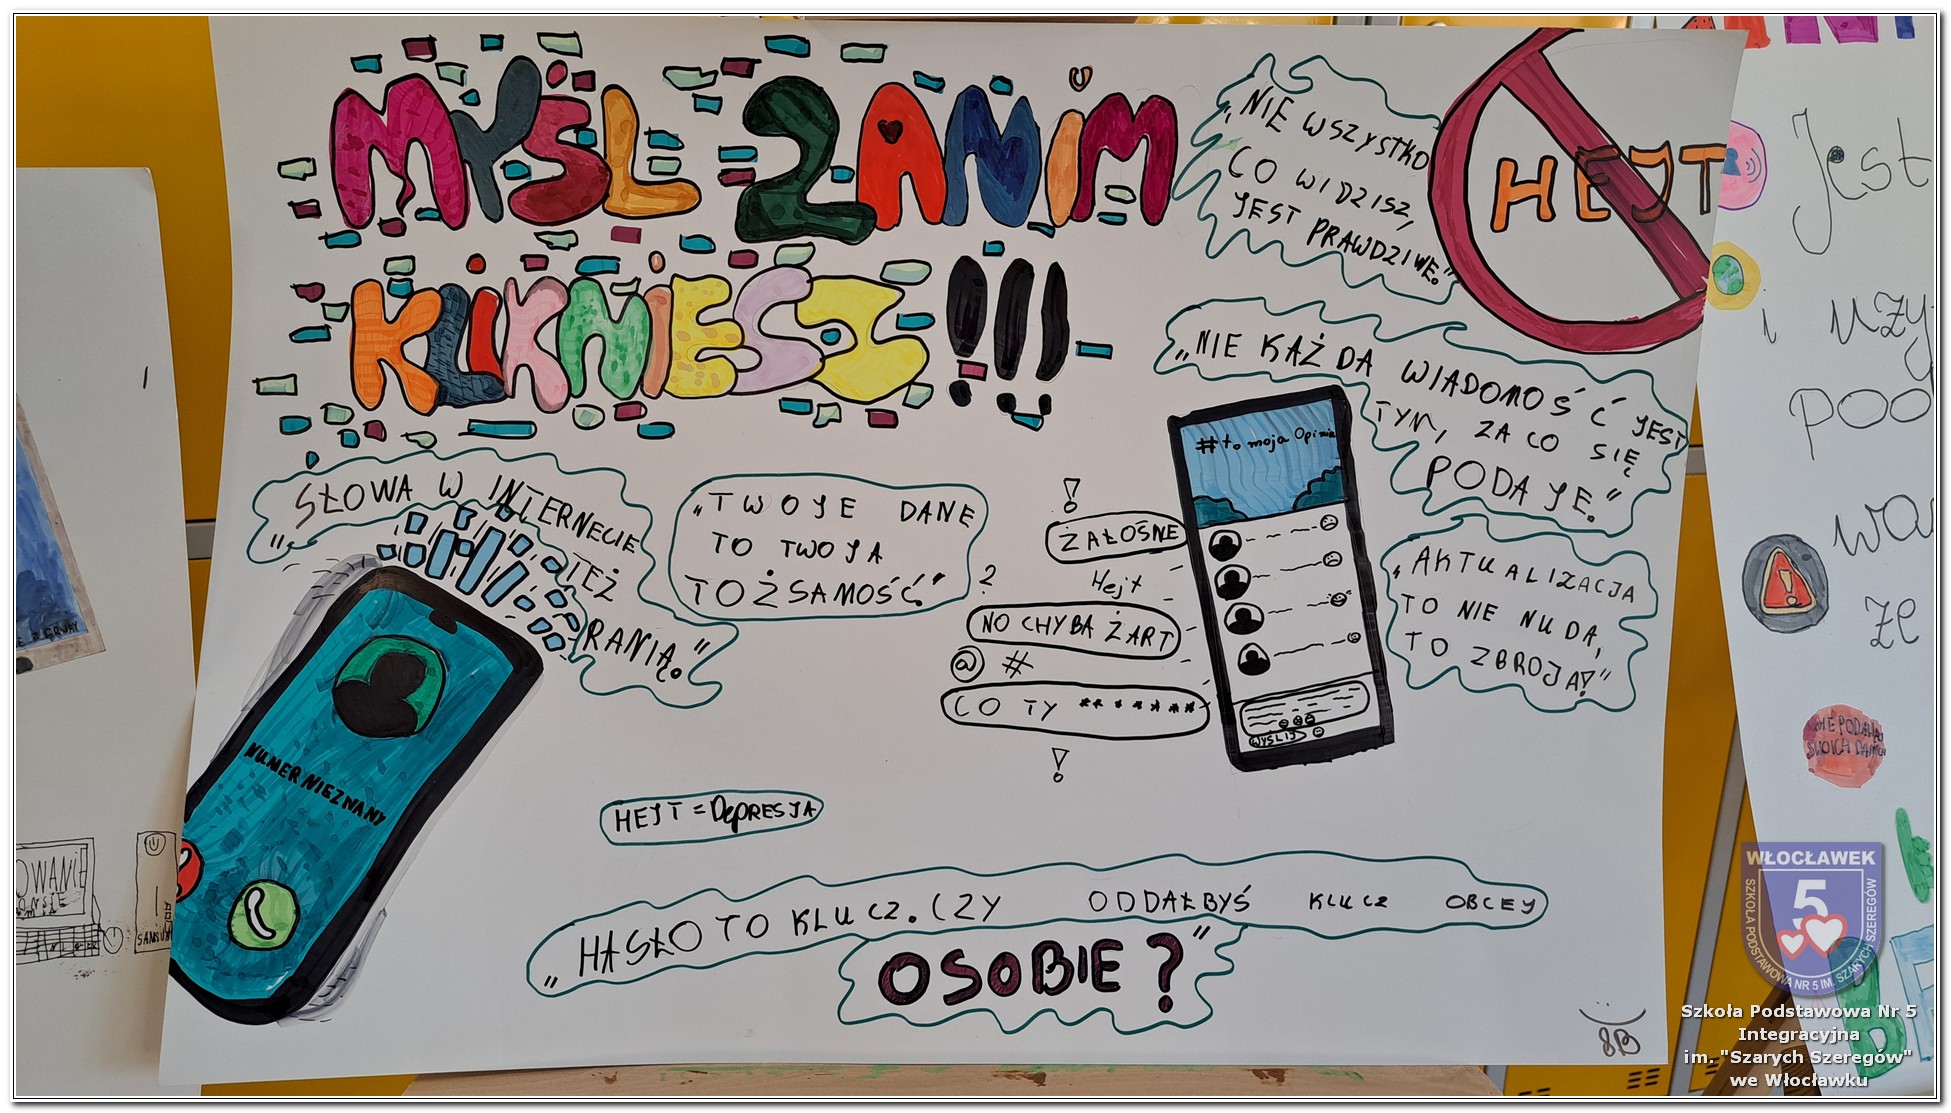 MYŚL ZANIM
KLIKNIESZ!!!
„NIE WSZYSTKO
CO WIDZISZ,
JEST PRAWDZIWE."
HEJT
„NIE KAŻDA WIADOMOŚĆ JEST
TYM, ZA CO SIĘ
PODAJE."
#to moja Opinia
„SŁOWA W INTERNECIE
TEŻ
RANIĄ."
„TWOJE DANE
TO TWOJA
TOŻSAMOŚĆ."
!
ŻAŁOSNE
Hejt
?
NO CHYBA ŻART
@ #
CO TY *******
!
WYŚLIJ
„AKTUALIZACJA
TO NIE NUDA,
TO ZBROJA!"
NUMER NIEZNANY
HEJT = DEPRESJA
„HASŁO TO KLUCZ. CZY ODDAŁBYŚ KLUCZ OBCEJ
OSOBIE?"
8B
Jest
i uży
poo
wa
że
NIE PODAWAJ
SWOICH DANYCH
WŁOCŁAWEK
5
SZKOŁA PODSTAWOWA NR 5 IM. SZARYCH SZEREGÓW
Szkoła Podstawowa Nr 5
Integracyjna
im. "Szarych Szeregów"
we Włocławku